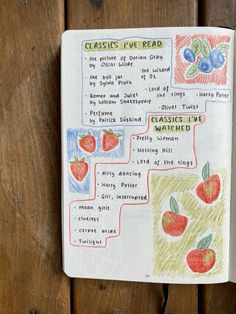 CLASSICS I'VE READ
· the picture of Dorian Gray
by Oscar Wilde
· the wizard
of Oz
· the bell jar
by Sylvia Plath
· Lord of the rings
· Harry Potter
· Romeo and Juliet
by William Shakespeare
· Oliver Twist
· Perfume
by Patrick Süskind
CLASSICS I'VE
WATCHED
· Pretty Woman
· Notting Hill
· Lord of the rings
· dirty dancing
· Harry Potter
· Girl, interrupted
· mean girls
· clueless
· corpse bride
· Twilight